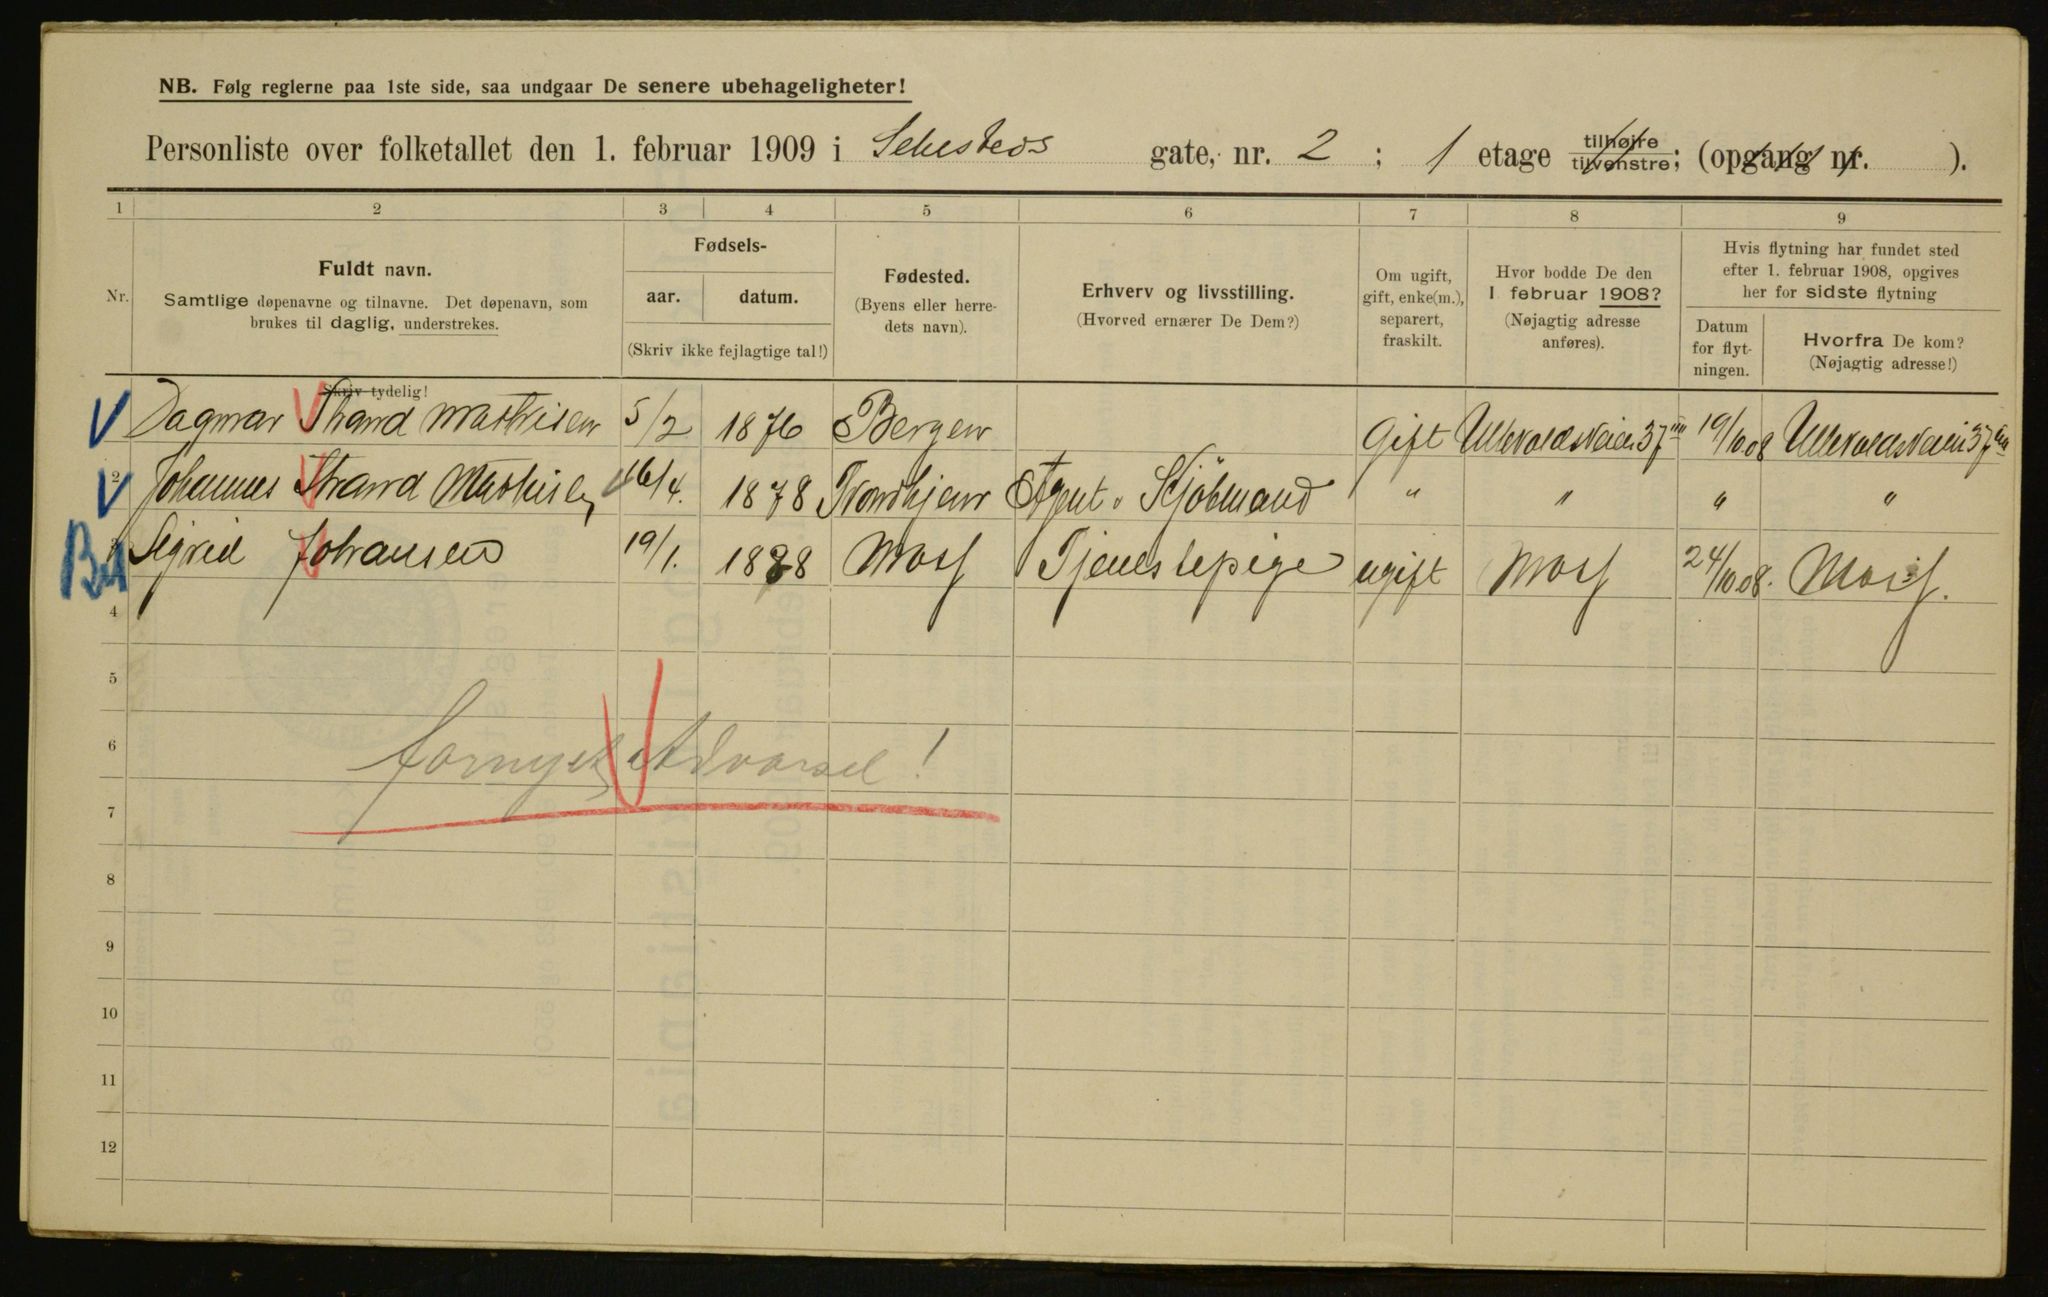 NB. Følg reglerne paa 1ste side, saa undgaar De senere ubehageligheter!
Personliste over folketallet den 1. februar 1909 i Sehesteds gate, nr. 2 ; 1 etage tilhøire tilvenstre; (opgang nr. ).
1 2 3 4 5 6 7 8 9
Nr.
Fuldt navn.
Samtlige døpenavne og tilnavne. Det døpenavn, som
brukes til daglig, understrekes.
Fødsels-
aar. datum.
(Skriv ikke fejlagtige tal!)
Fødested.
(Byens eller herre-
dets navn).
Erhverv og livsstilling.
(Hvorved ernærer De Dem?)
Om ugift,
gift, enke(m.),
separert,
fraskilt.
Hvor bodde De den
1 februar 1908?
(Nøjagtig adresse
anføres).
Hvis flytning har fundet sted
efter 1. februar 1908, opgives
her for sidste flytning
Datum
for flyt-
ningen.
Hvorfra De kom?
(Nøjagtig adresse!)
Skriv tydelig!
Dagmar Strand Mathisen 5/2 1876 Bergen Gift Ullevoldsveien 37 19/10.08 Ullevoldsveien 37
2 Johannes Strand Mathisen 16/4. 1878 Trondhjem Agent & Skjøbmand " " " "
3 Sigrid Johansen 19/1. 1888 Moss Tjenestepige ugift Moss 24/10.08. Moss.
4
5
6 fornyet Advarsel!
7
8
9
10
11
12